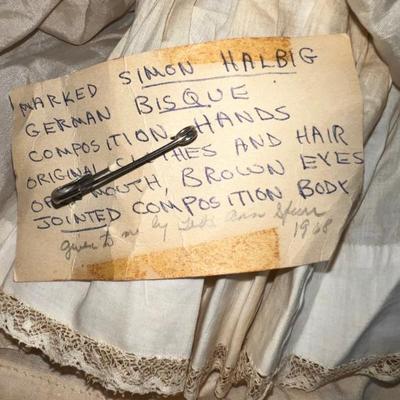 MARKED SIMON HALBIG
GERMAN BISQUE
COMPOSITION HANDS
ORIGINAL CLOTHES AND HAIR
OPEN MOUTH, BROWN EYES
JOINTED COMPOSITION BODY
given to me by Ann
1968